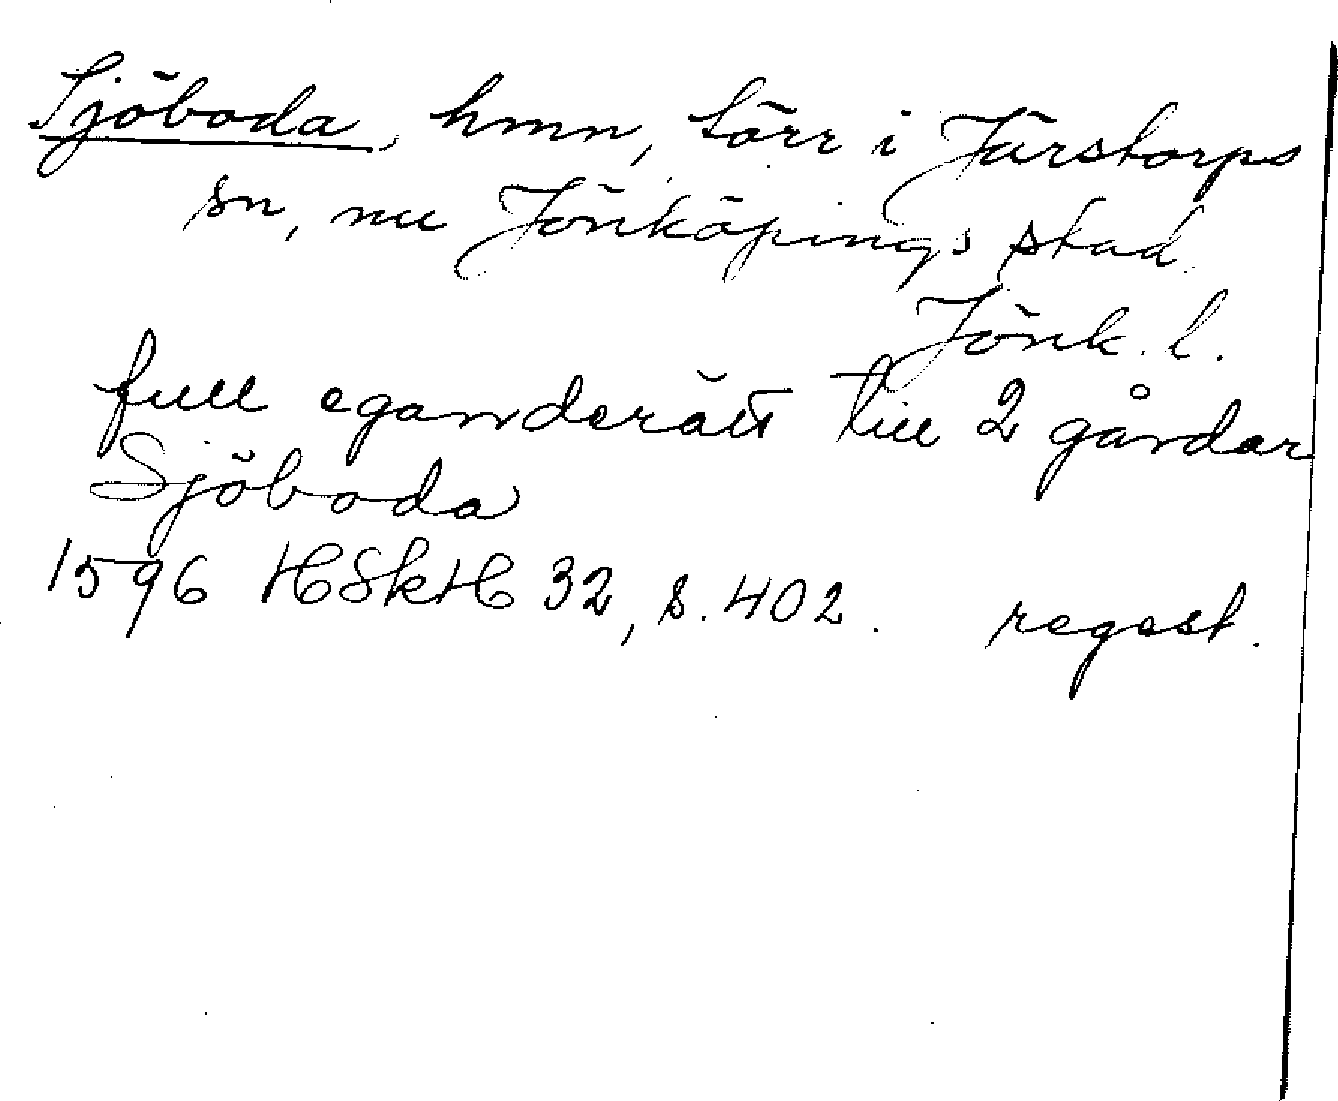 Sjöboda, hmn, förr i Järstorps
sn, nu Jönköpings stad.
Jönk. l.
full eganderätt till 2 gårdar
Sjöboda
1596 HSkH 32, s. 402. regest.